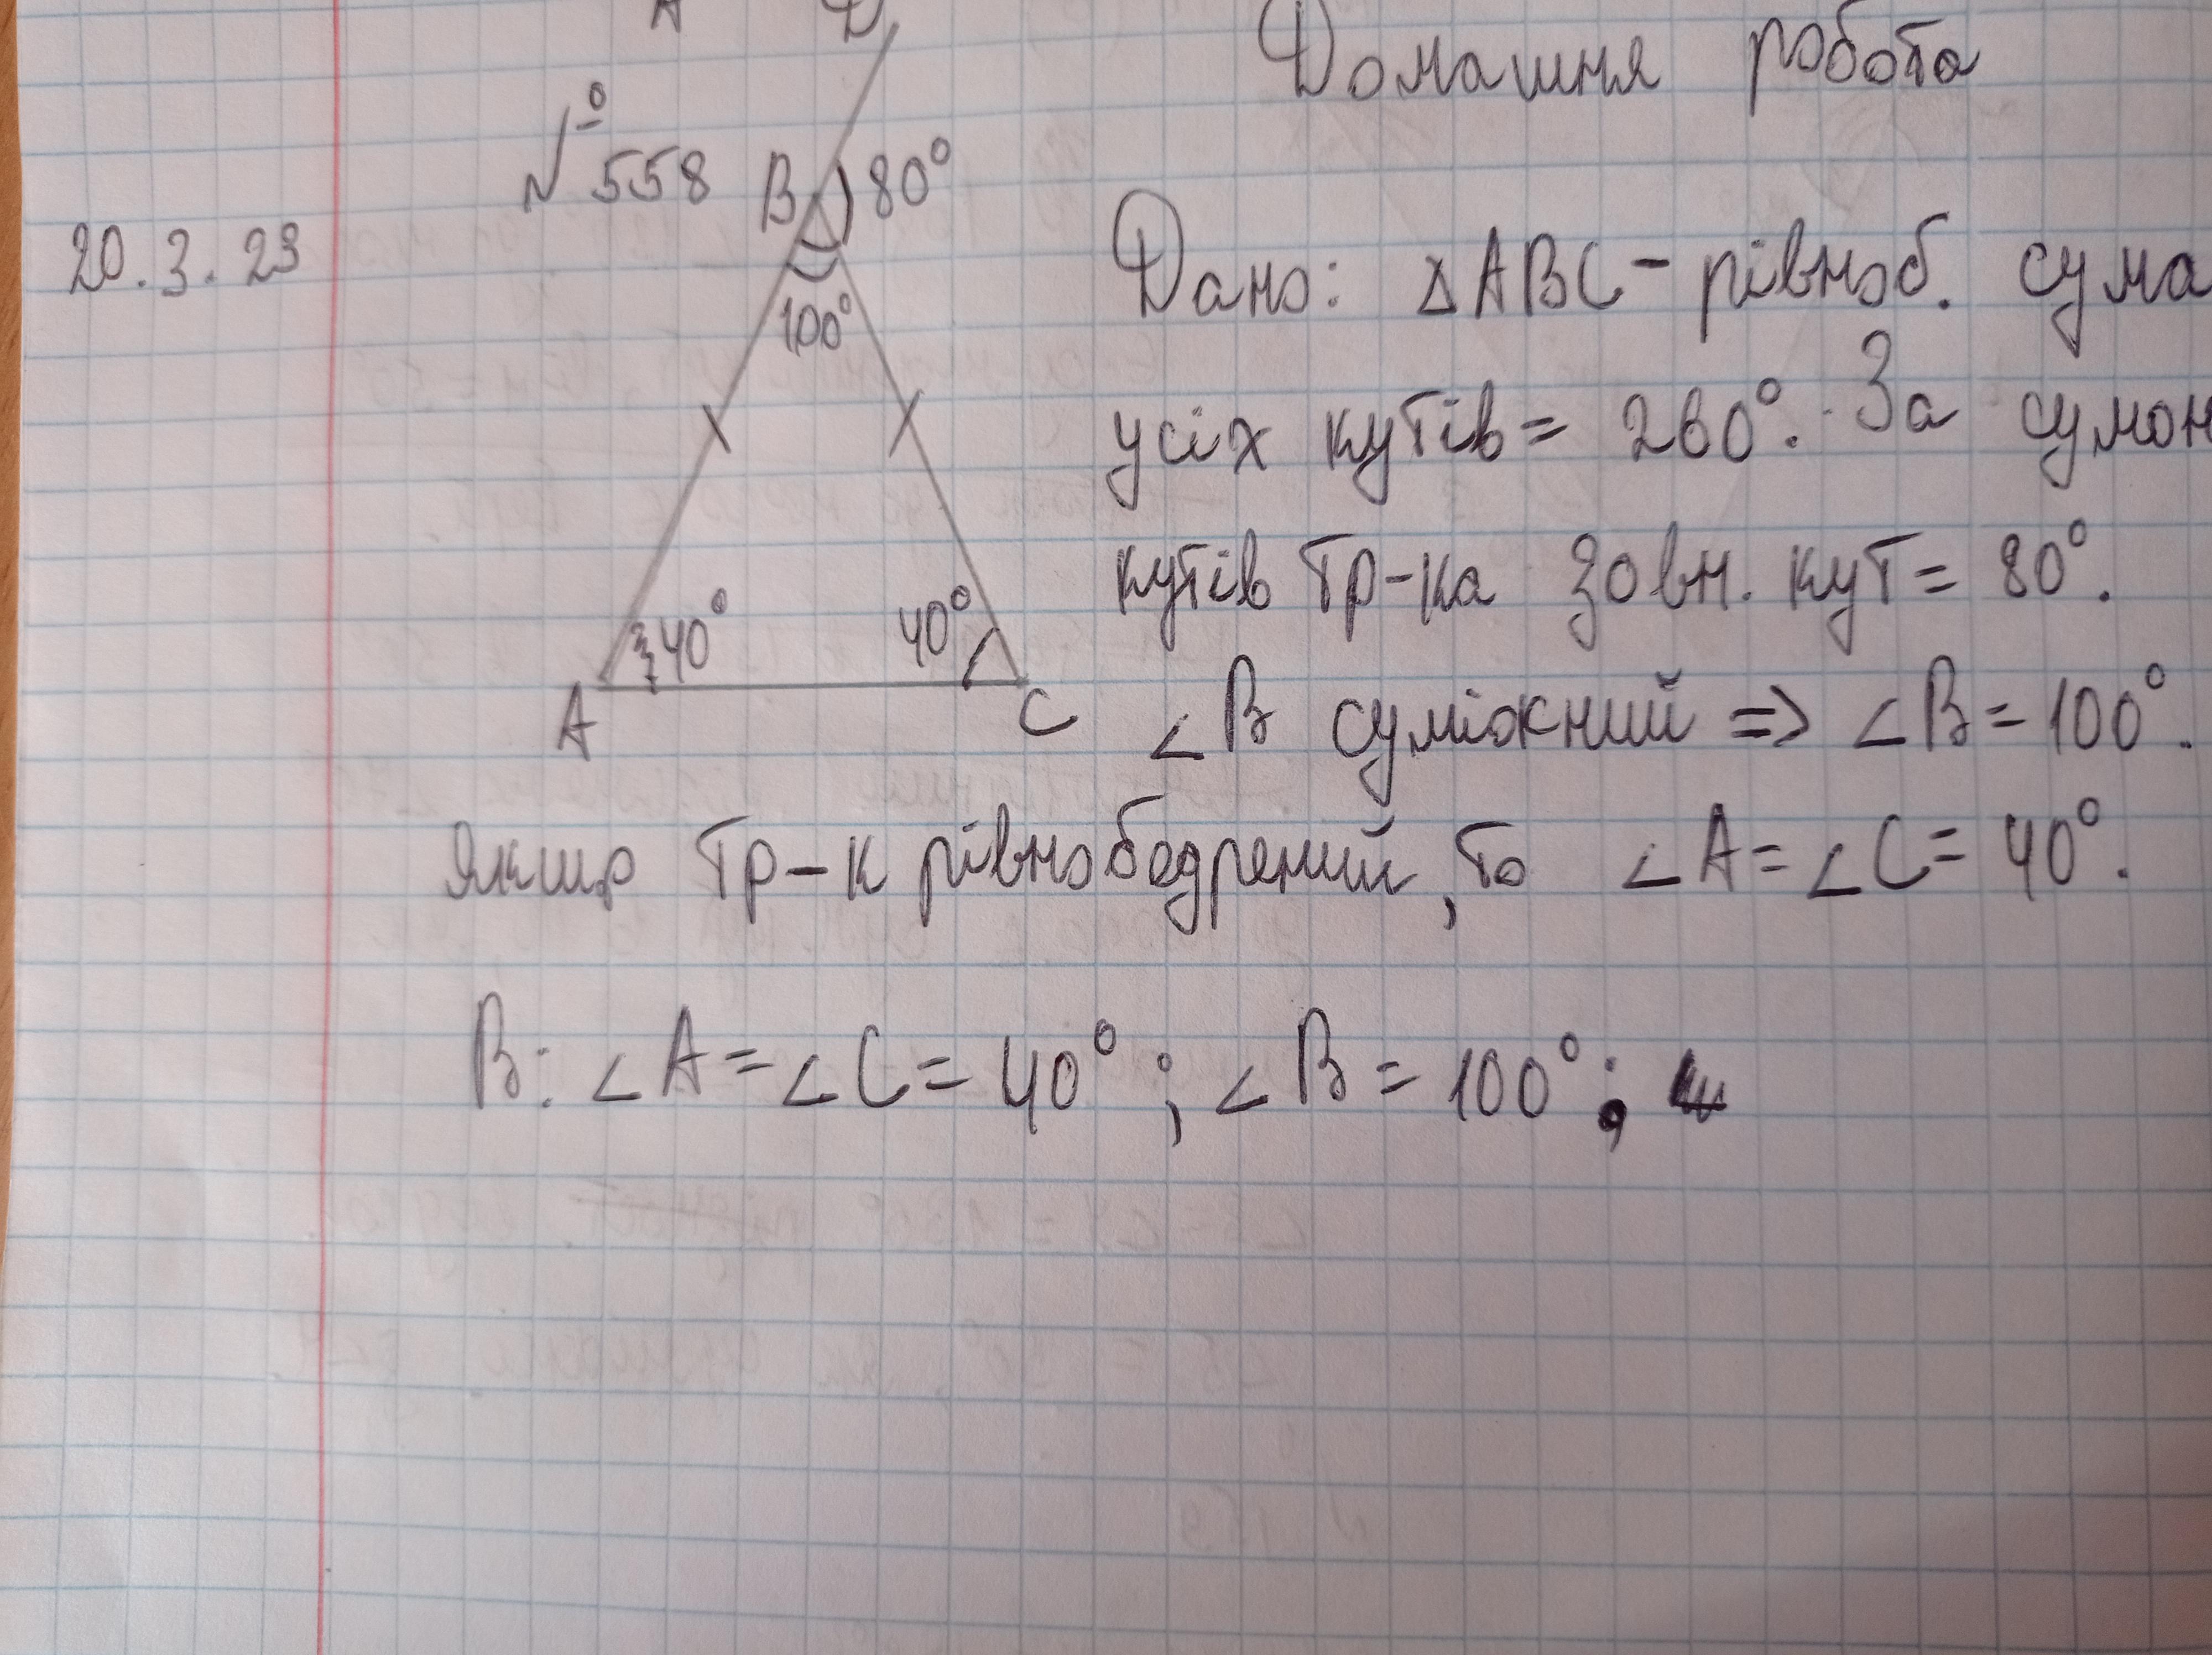 А D
Домашня робота
№ 558
B 80°
20.3.23
100°
Дано: △ABC - рівноб. сума
усіх кутів = 260°. За сумою
кутів тр-ка зовн. кут = 80°.
40° 40°
A C
∠B суміжний => ∠B = 100°.
Якщо тр-к рівнобедрений, то ∠A = ∠C = 40°.
В: ∠A = ∠C = 40°; ∠B = 100°;